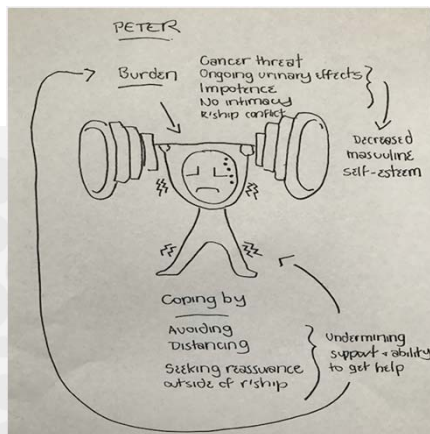 PETER
Burden
Cancer threat
Ongoing urinary effects
Impotence
No intimacy
R'ship conflict
Decreased
masculine
self-esteem
Coping by
Avoiding
Distancing
Seeking reassurance
outside of r'ship
Undermining
support + ability
to get help